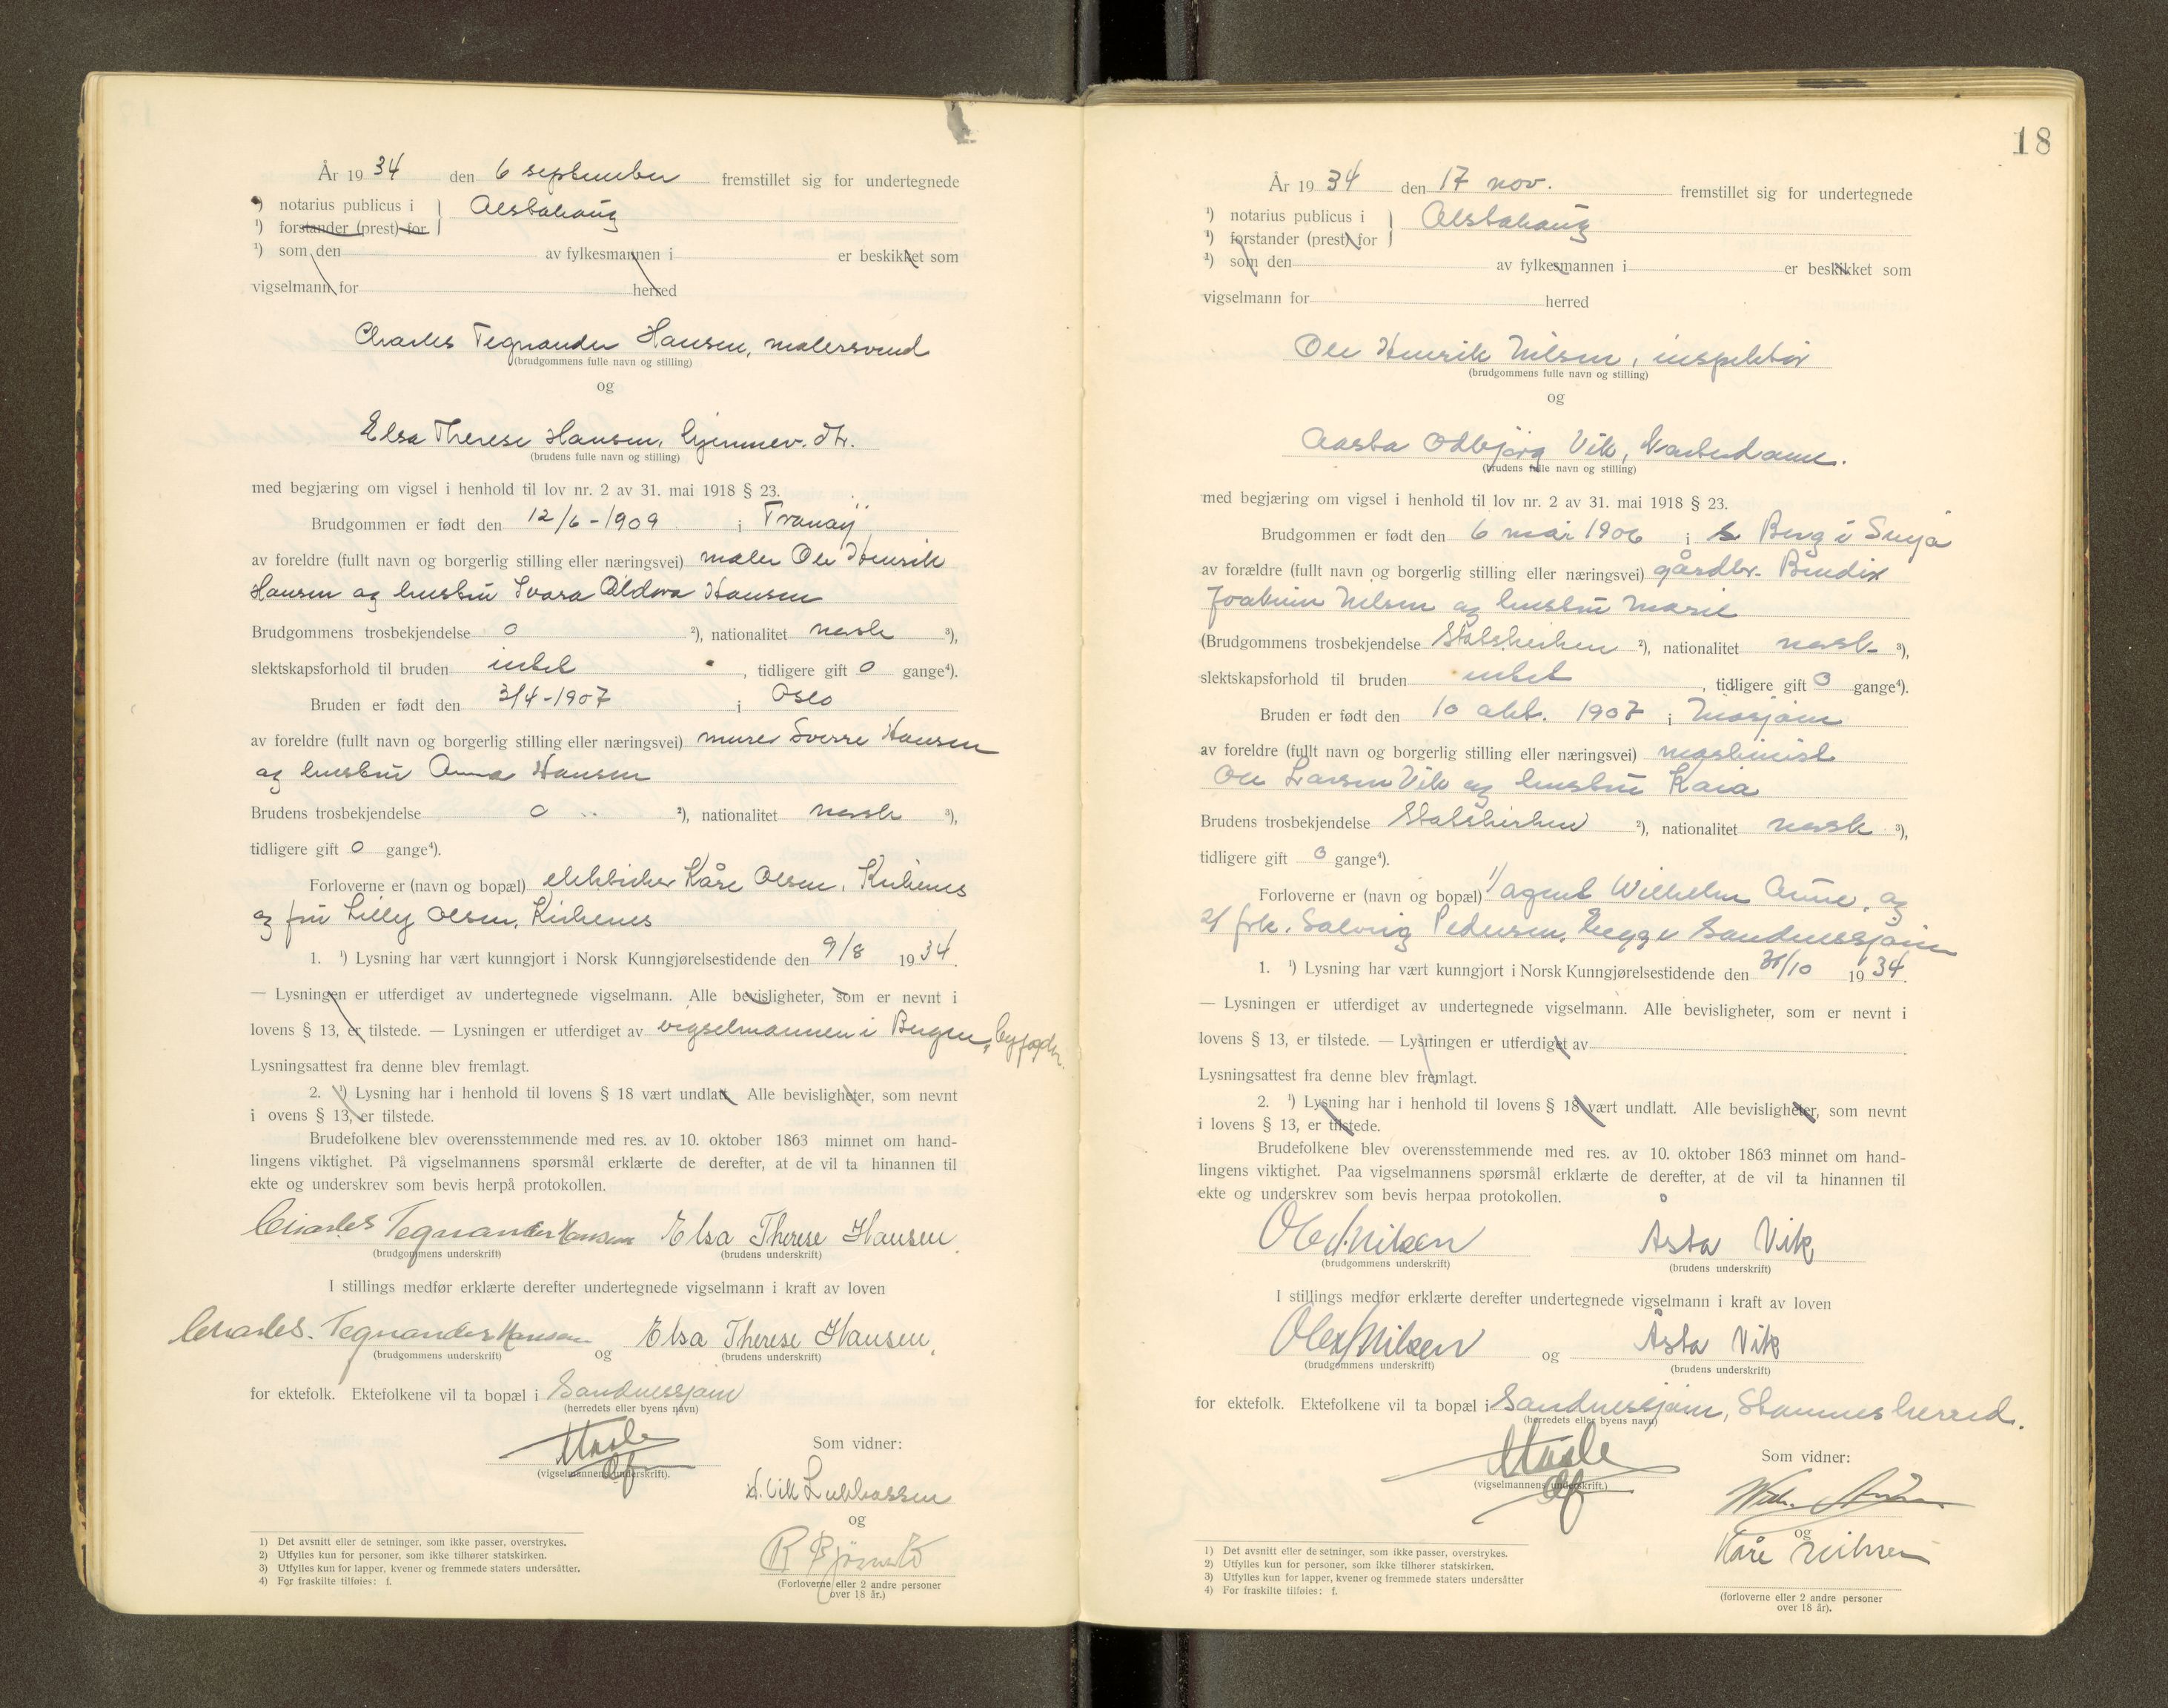 År 1934 den 6 september fremstillet sig for undertegnede
¹) notarius publicus i } Alstahaug
¹) forstander (prest) for
¹) som den av fylkesmannen i er beskikket som
vigselmann for herred
Charles Tegnander Hansen, malersvend
(brudgommens fulle navn og stilling)
og
Elsa Therese Hansen, hjemmev. dtr.
(brudens fulle navn og stilling)
med begjæring om vigsel i henhold til lov nr. 2 av 31. mai 1918 § 23.
Brudgommen er født den 12/6-1909 i Tranøy
av foreldre (fullt navn og borgerlig stilling eller næringsvei) maler Ole Henrik
Hansen og hustru Hansen
Brudgommens trosbekjendelse 0 ²), nationalitet norsk ³),
slektskapsforhold til bruden intet , tidligere gift 0 gange⁴).
Bruden er født den 3/4-1907 i Oslo
av foreldre (fullt navn og borgerlig stilling eller næringsvei) murer Sverre Hansen
og hustru Anna Hansen
Brudens trosbekjendelse 0 ²), nationalitet norsk ³),
tidligere gift 0 gange⁴).
Forloverne er (navn og bopæl) elektriker Kåre Olsen, Kirkenes
og fru Lilly Olsen, Kirkenes
1. ¹) Lysning har vært kunngjort i Norsk Kunngjørelsestidende den 9/8 1934.
— Lysningen er utferdiget av undertegnede vigselmann. Alle bevisligheter, som er nevnt i
lovens § 13, er tilstede. — Lysningen er utferdiget av vigselmannen i Bergen, byfogden.
Lysningsattest fra denne blev fremlagt.
2. ¹) Lysning har i henhold til lovens § 18 vært undlatt. Alle bevisligheter, som nevnt
i ovens § 13, er tilstede.
Brudefolkene blev overensstemmende med res. av 10. oktober 1863 minnet om hand-
lingens viktighet. På vigselmannens spørsmål erklærte de derefter, at de vil ta hinannen til
ekte og underskrev som bevis herpå protokollen.
Charles Tegnander Hansen Elsa Therese Hansen.
(brudgommens underskrift) (brudens underskrift)
I stillings medfør erklærte derefter undertegnede vigselmann i kraft av loven
Charles. Tegnander Hansen og Elsa Therese Hansen.
(brudgommens underskrift) (brudens underskrift)
for ektefolk. Ektefolkene vil ta bopæl i Sandnessjøen
(herredets eller byens navn)
Som vidner:
(vigselmannens underskrift).
og
(Forloverne eller 2 andre personer
over 18 år.)
1) Det avsnitt eller de setninger, som ikke passer, overstrykes.
2) Utfylles kun for personer, som ikke tilhører statskirken.
3) Utfylles kun for lapper, kvener og fremmede staters undersåtter.
4) For fraskilte tilføies: f.
18
År 1934 den 17 nov. fremstillet sig for undertegnede
¹) notarius publicus i } Alstahaug
¹) forstander (prest) for
¹) som den av fylkesmannen i er beskikket som
vigselmann for herred
Ole Henrik Nilsen, inspektør
(brudgommens fulle navn og stilling)
og
Aasta Odbjørg Vik, kontordame.
(brudens fulle navn og stilling)
med begjæring om vigsel i henhold til lov nr. 2 av 31. mai 1918 § 23.
Brudgommen er født den 6 mai 1906 i Berg i Senja
av forældre (fullt navn og borgerlig stilling eller næringsvei) gårdbr. Bendix
Joakim Nilsen og hustru Marie
(Brudgommens trosbekjendelse Statskirken ²), nationalitet norsk ³),
slektskapsforhold til bruden intet , tidligere gift 0 gange⁴).
Bruden er født den 10 okt. 1907 i Mosjøen
av foreldre (fullt navn og borgerlig stilling eller næringsvei) maskinist
Ole Larsen Vik og hustru Kaia
Brudens trosbekjendelse Statskirken ²), nationalitet norsk ³),
tidligere gift 0 gange⁴).
Forloverne er (navn og bopæl) 1/ agent Wilhelm Aune, og
2/ frk. Solveig Pedersen, begge Sandnessjøen
1. ¹) Lysning har vært kunngjort i Norsk Kunngjørelsestidende den 31/10 1934.
— Lysningen er utferdiget av undertegnede vigselmann. Alle bevisligheter, som er nevnt i
lovens § 13, er tilstede. — Lysningen er utferdiget av
Lysningsattest fra denne blev fremlagt.
2. ¹) Lysning har i henhold til lovens § 18 vært undlatt. Alle bevisligheter, som nevnt
i lovens § 13, er tilstede.
Brudefolkene blev overensstemmende med res. av 10. oktober 1863 minnet om hand-
lingens viktighet. Paa vigselmannens spørsmål erklærte de derefter, at de vil ta hinannen til
ekte og underskrev som bevis herpaa protokollen.
Ole H Nilsen Åsta Vik
(brudgommens underskrift) (brudens underskrift)
I stillings medfør erklærte derefter undertegnede vigselmann i kraft av loven
Ole H Nilsen og Åsta Vik
(brudgommens underskrift) (brudens underskrift)
for ektefolk. Ektefolkene vil ta bopæl i Sandnessjøen, Stamnes herred.
(herredets eller byens navn)
Som vidner:
(vigselmannens underskrift.)
og
Kåre Nilsen
(forloverne eller 2 andre personer
over 18 år).
1) Det avsnitt eller de setninger, som ikke passer, overstrykes.
2) Utfylles kun for personer, som ikke tilhører statskirken.
3) Utfylles kun for lapper, kvener og fremmede staters undersåtter
4) For fraskilte tilføies: f.